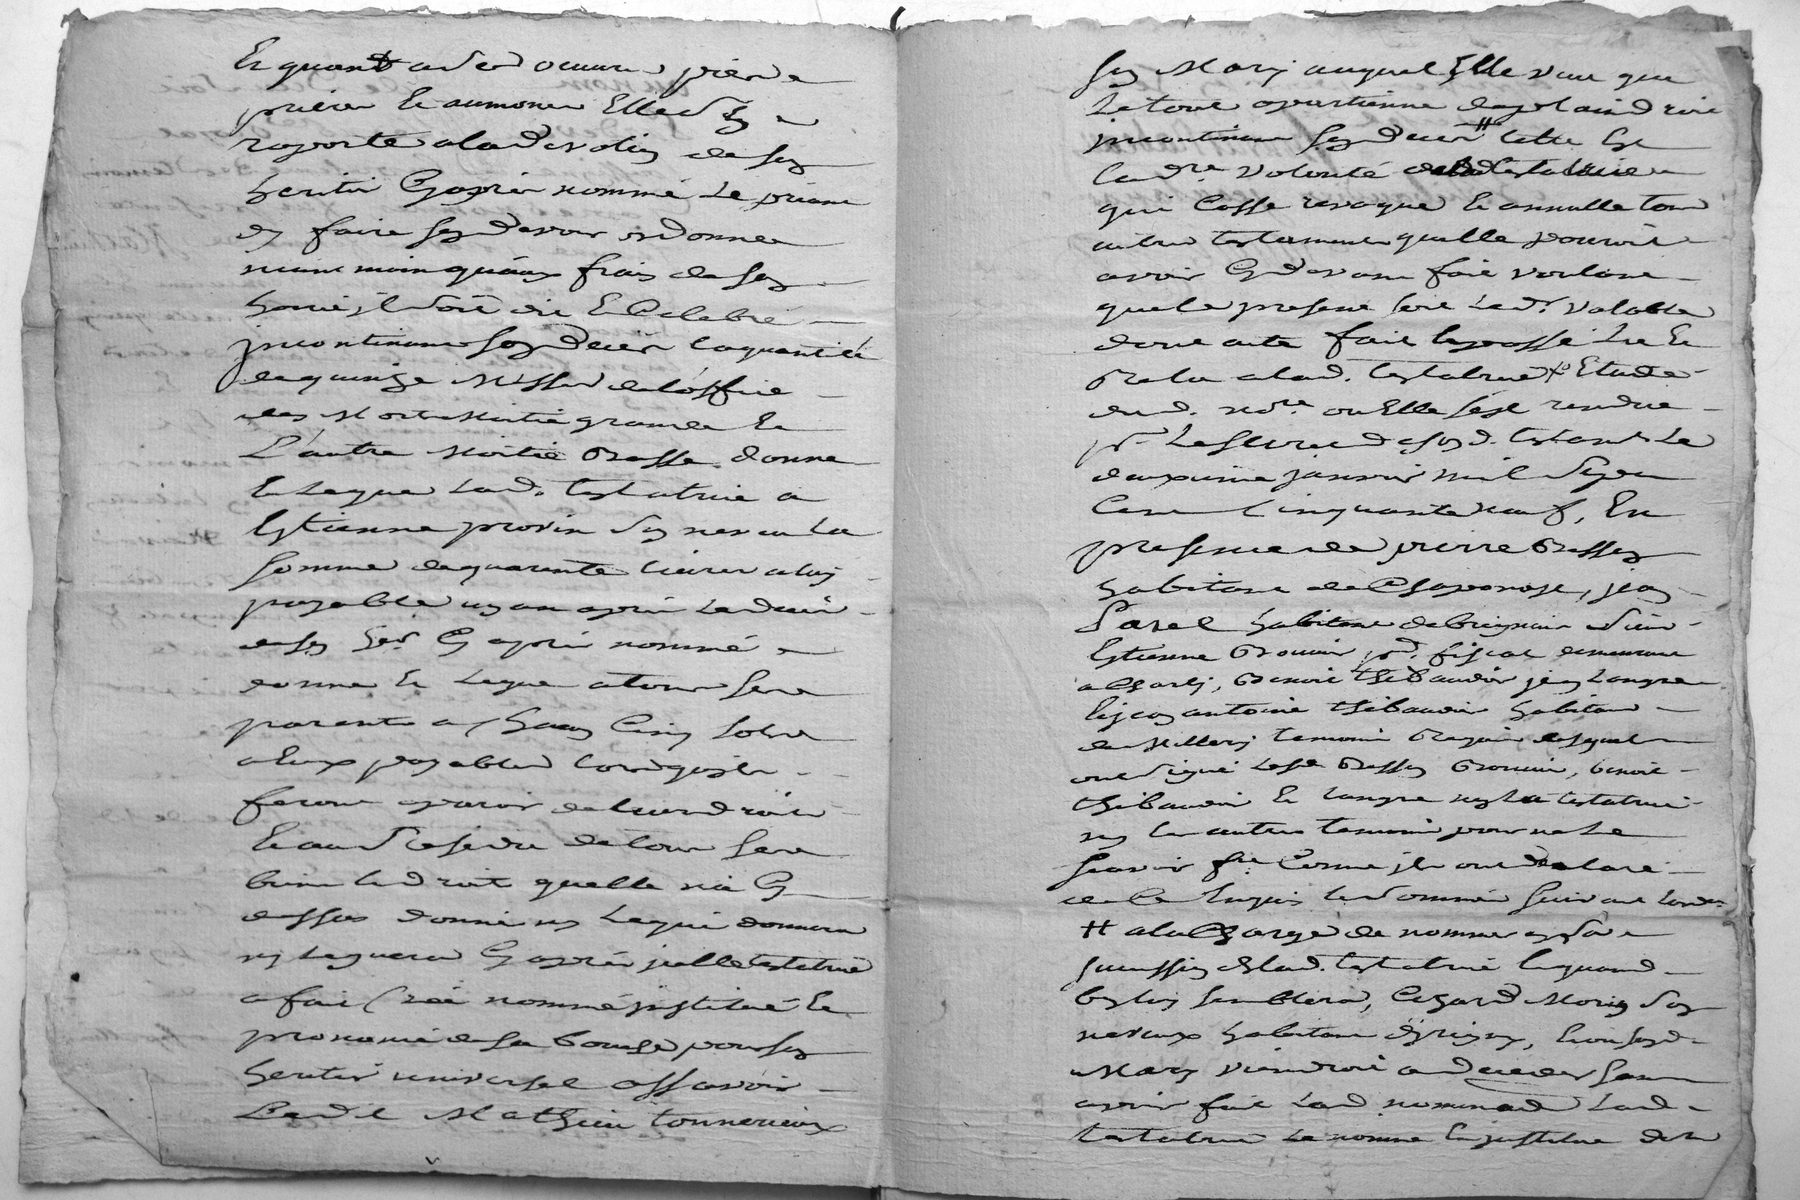 Et quant a ses oeuvres pies
prieres Et aumones Elle s'en
raporte a la devotion de son
heritier Cy apres nommé Le priant
d'en faire son devoir ordonne
neanmoin qu'aux frais de son
hoirie il soit dit Et Celebré
incontinant son deces la quantité
de quinze Messes de l'office
des Morts Moitié grande Et
L'autre Moitié Basse donne
Et Legue Lad. testatrice a
Estienne provin son neveu La
somme de quarente livres a luy
payable un an apres Led. deces
de son her. Cy apres nommé
donne Et Legue a tous ses
parents a Chacun Cinq sols
a Eux payables lors qu'ils
feront aparoir de leurs droits
Et au residu de tous ses
biens Et droits quelle n'a Cy
dessus donné ny Legué donnera
ny Leguera Cy apres jcelle testatrice
a fait Créé nommé institué Et
prononcé de sa bouche pour son
heritier universel assavoir
Led. Mathieu tonnerieux
son Mary auquel Elle veut que
Le tout apartienne de plain droit
incontinant son deces # telle Est
la der.re volonté de lad. testatrice
qui Casse revoque Et annulle tous
autres testaments quelle pouroit
avoir Cy devant fait voulant
que le present soit Le d.r valable
dont acte fait Et passé Lu Et
Relu a lad. testatrice Etude
dud. no.re ou Elle s'est rendue
p.r La facture de sond. testament Le
deuxieme janvier mil sept
Cent Cinquante neuf, En
presence de pierre Bessey
habitant de Chaponost, jean
Parel habitant de brignais sieur
Estienne Bouvier p.r fiscal demeurant
a Charly, Benoit thibaudier jean Langre
Et jean antoine thibaudier habitants
de Millery temoins Requis desquels
ont signé Lesd. Bessey Bouvier, benoit
thibaudier Et Langre non La testatrice
ny les autres temoins pour ne Le
scavoir f.re Comme ils ont declaré
de Ce Enquis Et sommés suivant Lord.ce
# a la Charge de nommer a sa
succession de lad. testatrice Et quand
bon luy semblera, Cezard Morin son
neveux habitant d'Irigny, Et ou sond.
Mary viendroit a deceder sans
avoir fait Lad. nomination Lad.
testatrice Le nomme Et institue de la